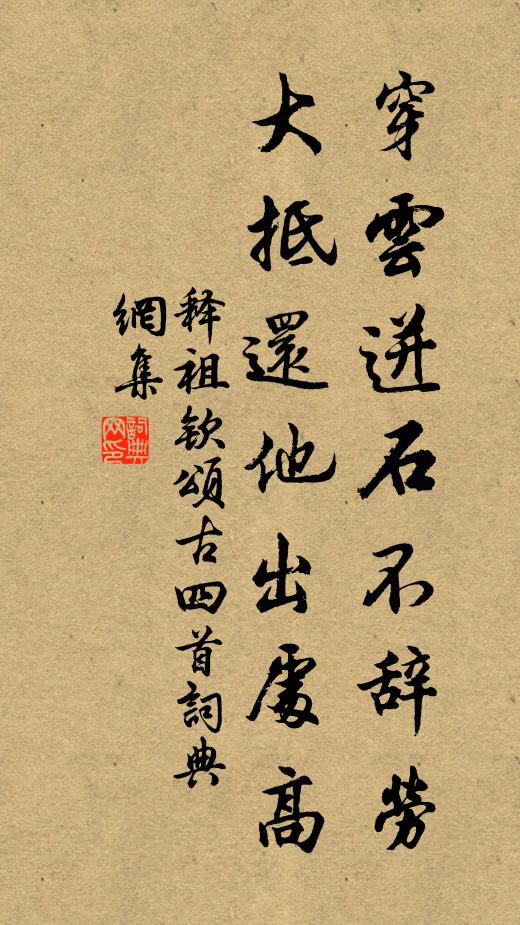 穿雲迸石不辞勞
大抵還他出處高
释祖欽頌古四首詞典
網集
詞典
网印